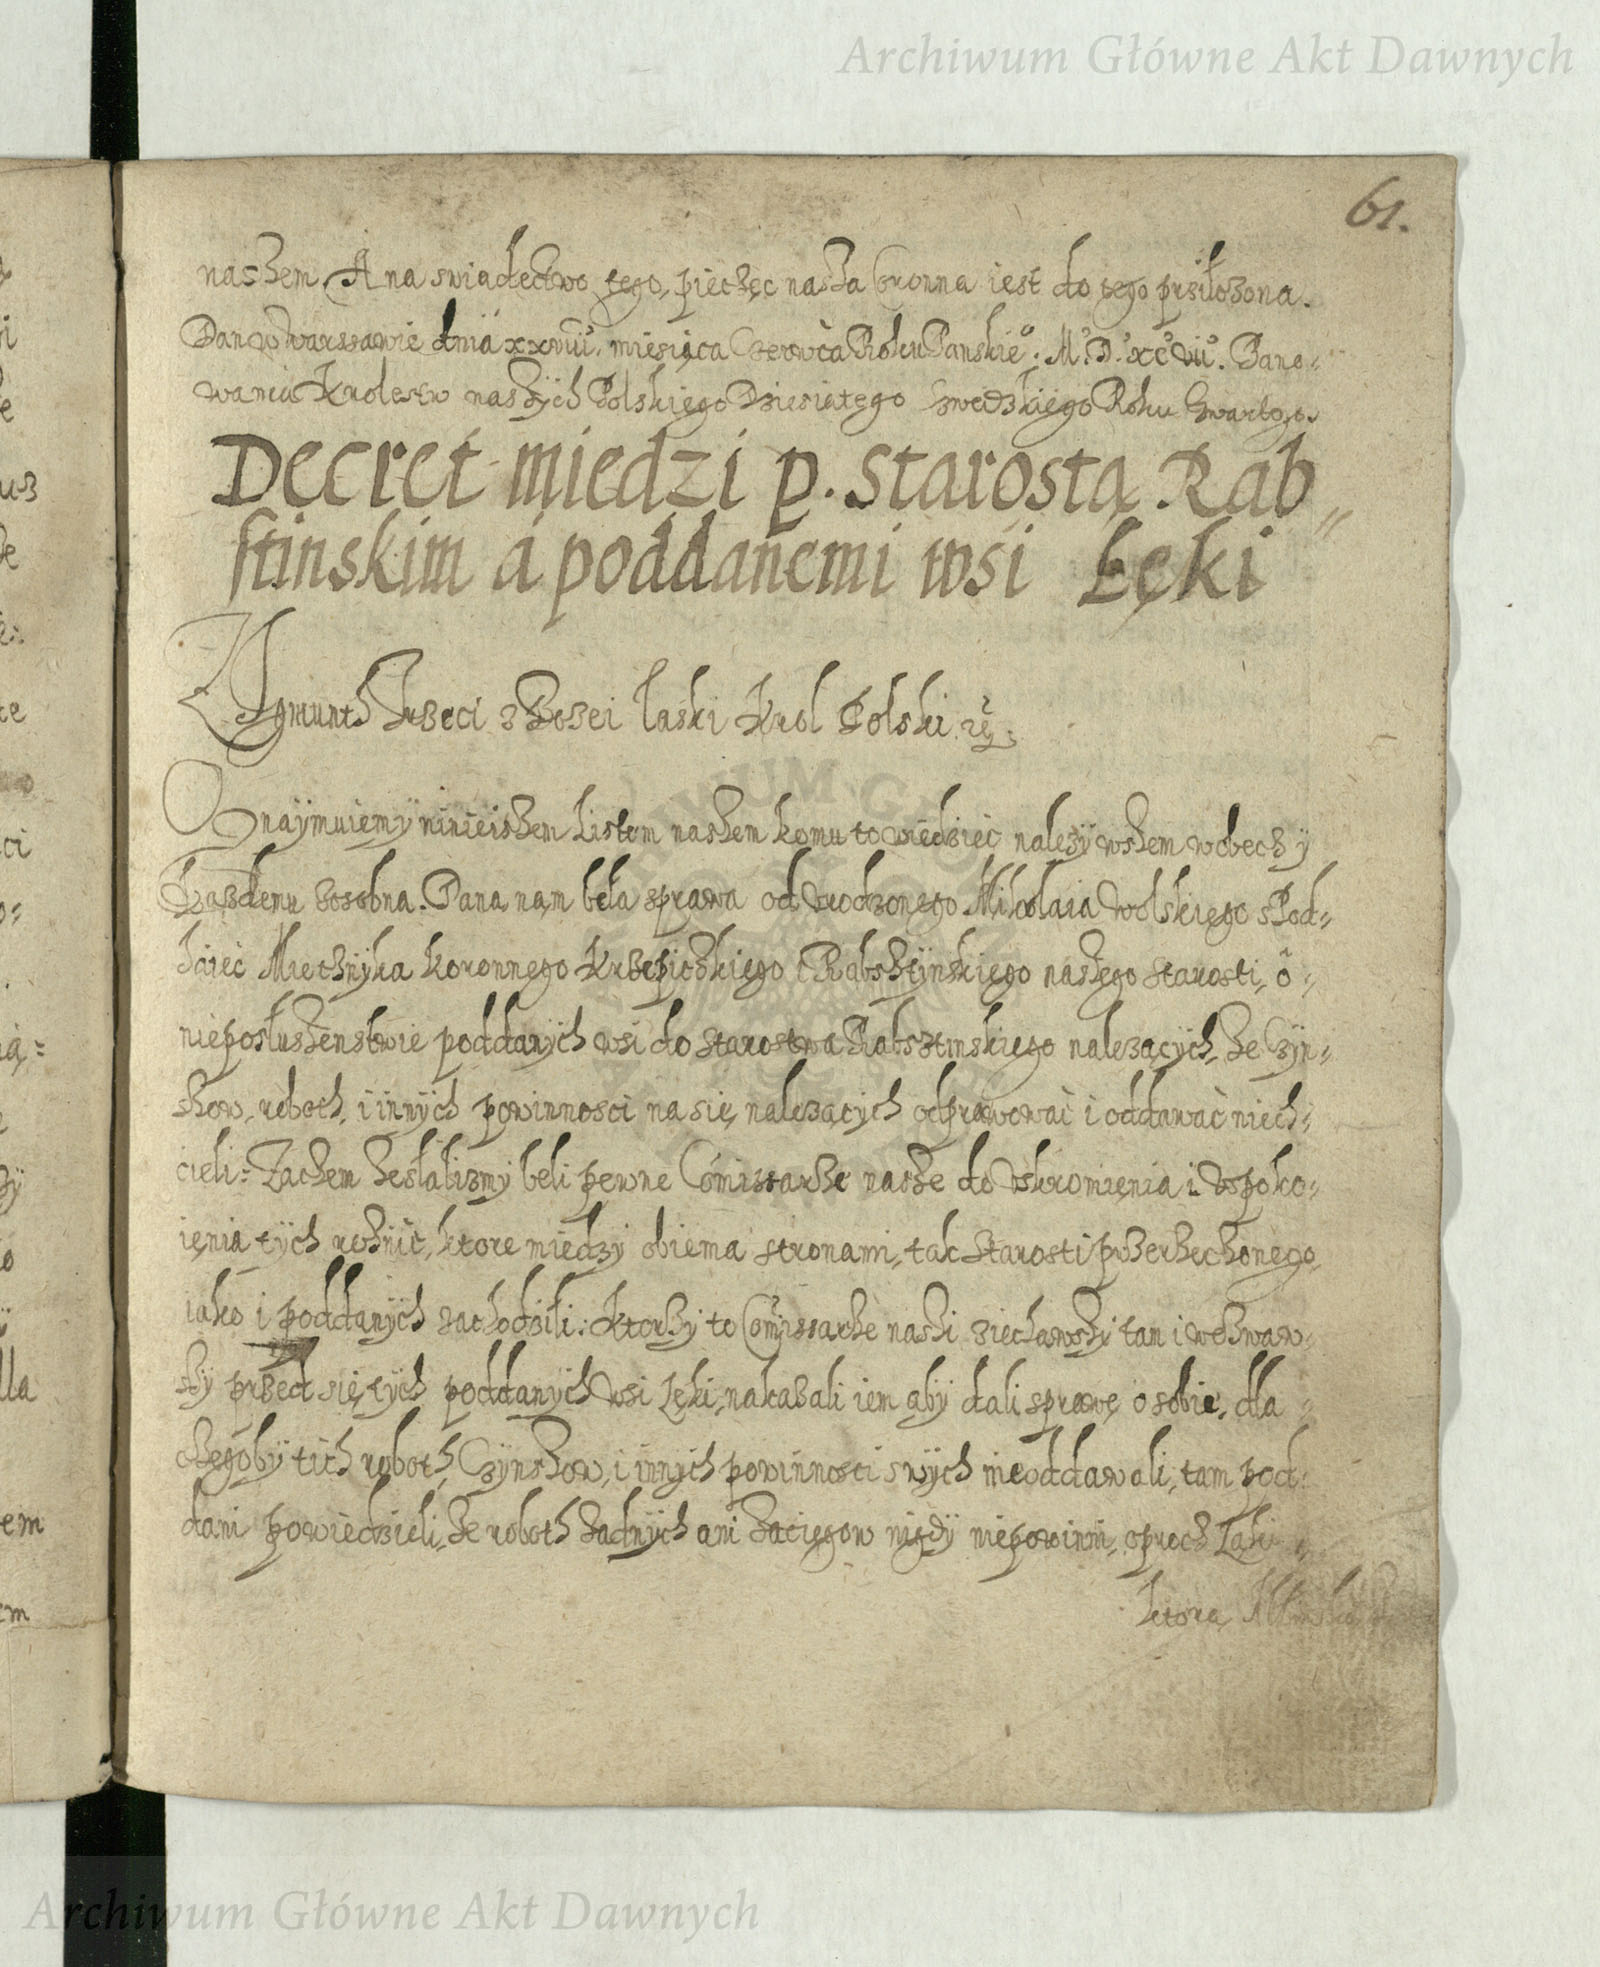 Archiwum Główne Akt Dawnych
61.
naszem A na swiadectwo tego, pieczęc nasza Coronna iest do tego prziłozona.
Dan w Warssawie dnia xxviii. miesiąca Czerwca Roku Panskieo. M. D. xc vii. Pano-
wania Krolestw naszych Polskiego Dziesiątego Szwedzkiego Roku Czwartego.
Decret miedzi p. starostą Rab-
stinskim á poddanemi wsi Łęki
Zygmunth Trzeci z Bozei łaski Krol Polski
Oznaymuiemy ninieiszem Listem naszem komu to wiedzieć nalezy wszem wobec y
kazdemu zosobna. Dana nąm beła sprawa od Urodzonego Mikolaia Wolskiego s Pod-
haiec Miecznyka koronnego Krzepiczkiego i Rabsztynskiego naszego Starosti, o
nieposłuszenstwie poddanych wsi do Starostwa Rabsztinskiego nalezących, ze Czyn-
szow, roboth, i innych powinnosci na się nalezących odprawować i oddawać niech-
cieli: Zaczem zesłalismy beli pewne Comissarze nasze do Uskromięnia i Uspoko-
ięnia tych roznic, ktore miedzy obiema stronami, tak Starosti przerzeczonego,
iako i poddanych zachodziłi: Ktorzy to Comissarze naszi ziechawszy tam i wezwaw-
szy przed się tych poddanych wsi Łęki, nakazali iem aby dali sprawę o sobie, dla
czegoby tich roboth, Czynszow, i innych powinnosci swych nieoddawali, tam pod-
dani powiedzieli, ze roboth zadnych ani zaciągow nigdy niepowinni, oprocz Łąki
ktora
Archiwum Główne Akt Dawnych